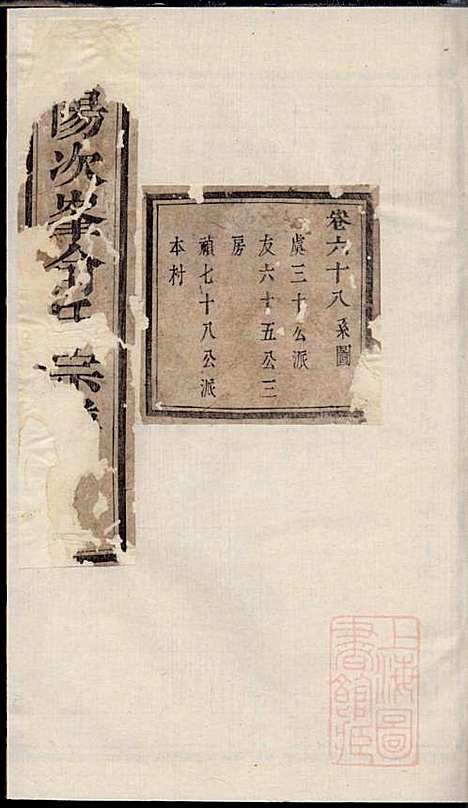 卷六十八系圖
虞三十公派
友六十五公三
房
禎七十八公派
本村
陽次峯今
宗
上海圖
書館藏